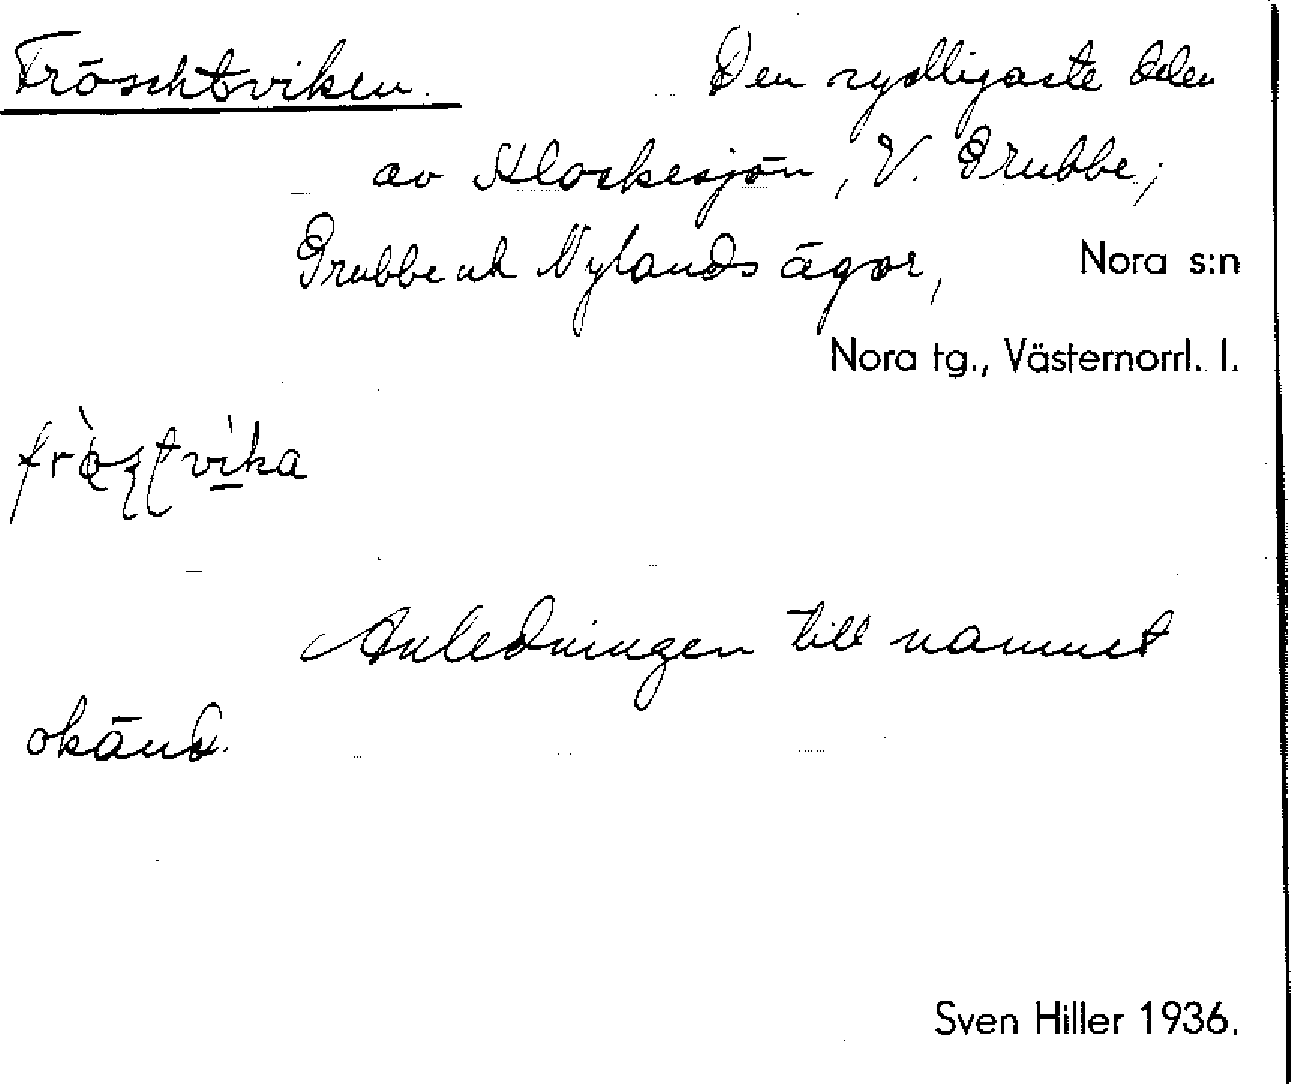 Fröschtviken. Den sydligaste delen
av Klockesjön, V. Grubbe,
Grubbe och Nylands ägor, Nora s:n
Nora tg., Västernorrl. l.
Anledningen till namnet
okänd.
Sven Hiller 1936.